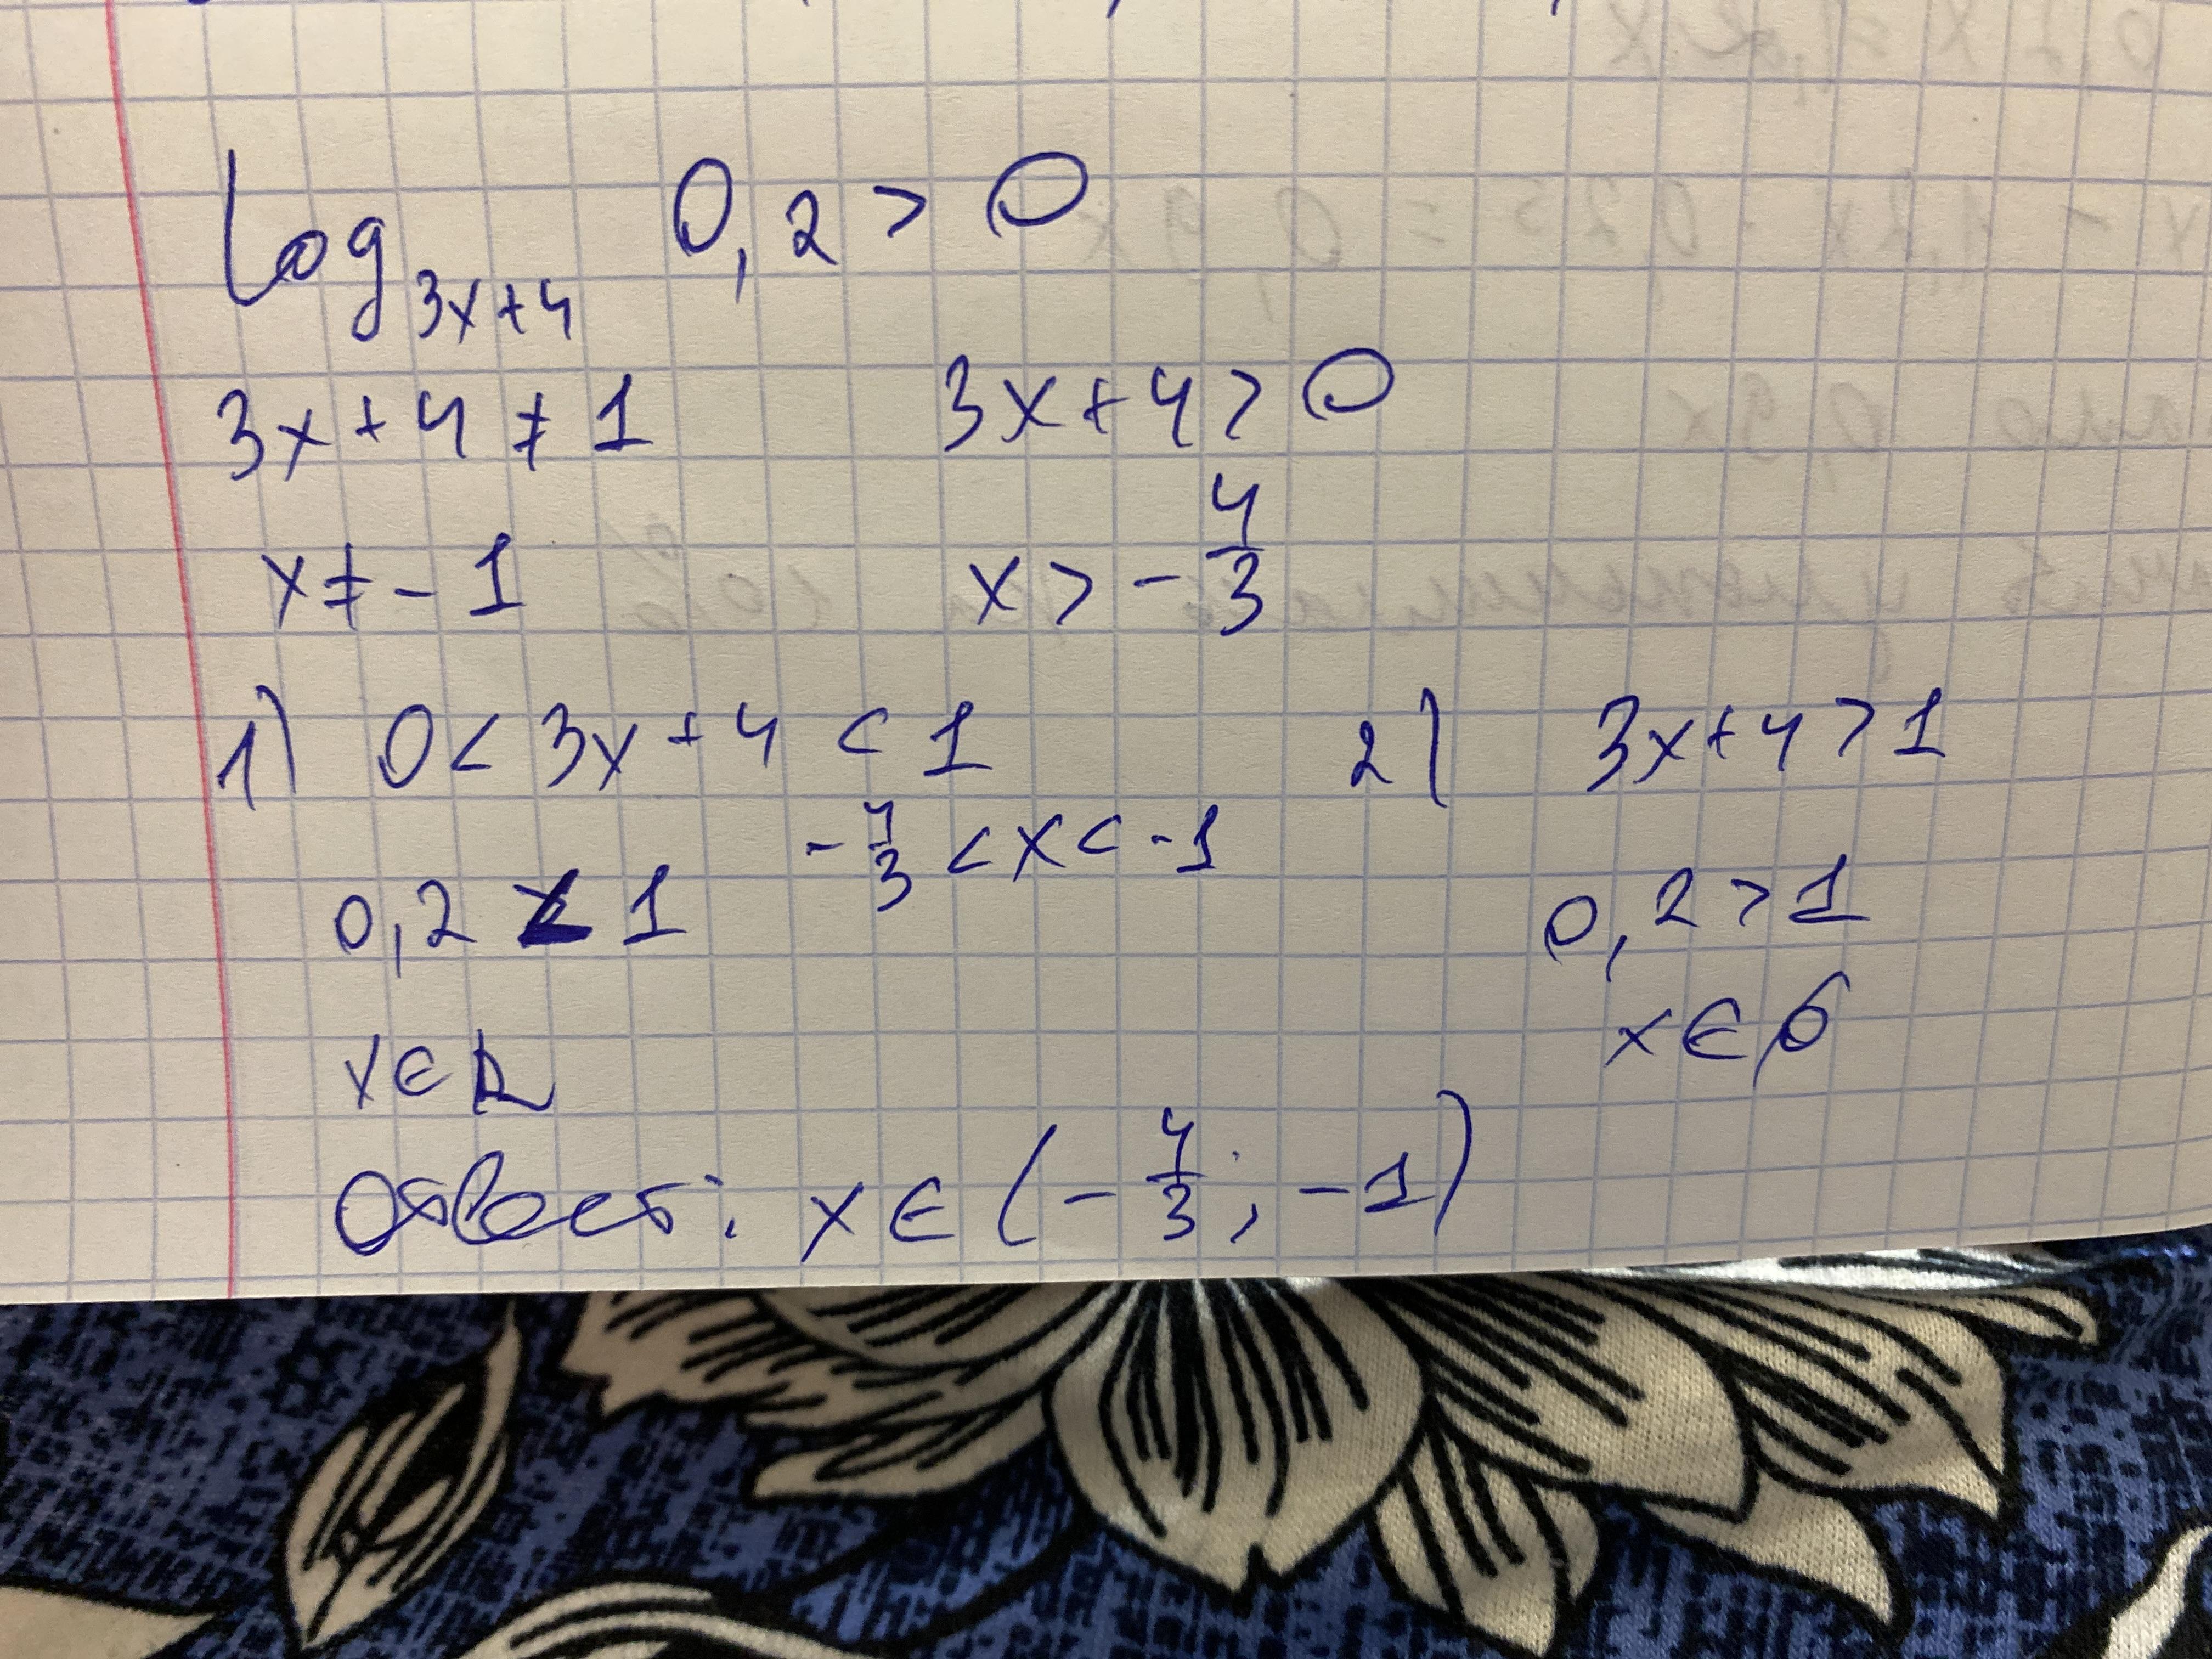 log₃ₓ₊₄ 0,2 > 0
3x+4 ≠ 1 3x+4 > 0
x ≠ -1 x > -4/3
1) 0 < 3x+4 < 1 2) 3x+4 > 1
-4/3 < x < -1
0,2 < 1 0,2 > 1
x ∈ R x ∈ ∅
Ответ: x ∈ (-4/3; -1)